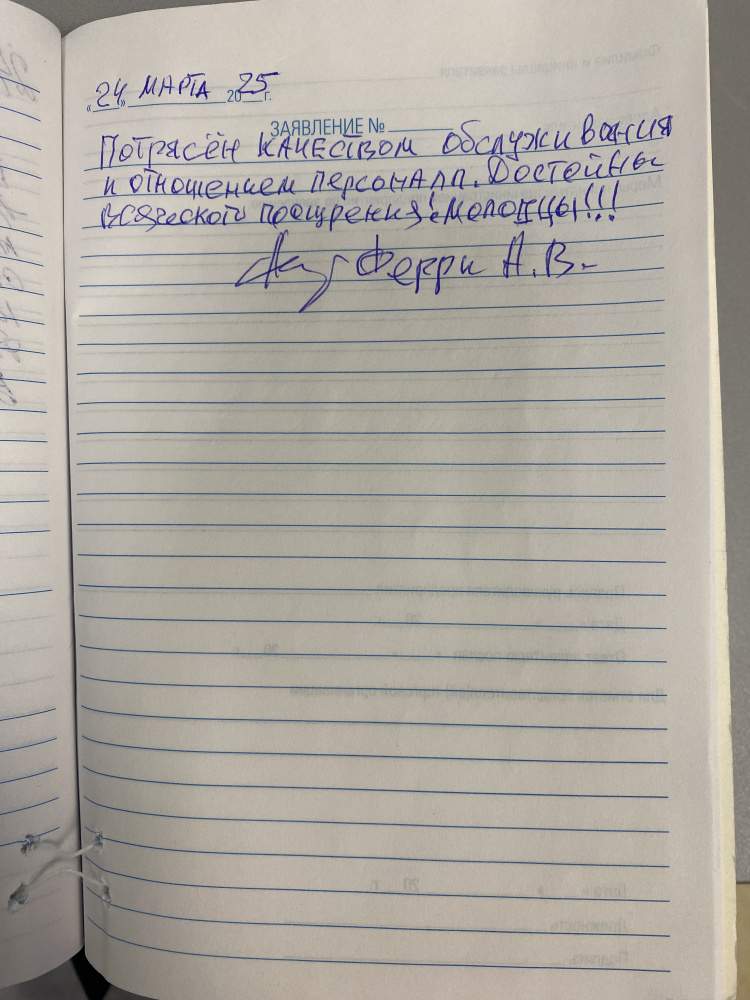 «24» МАРТА 2025 г.
ЗАЯВЛЕНИЕ №
Потрясён качеством обслуживания
и отношением персонала. Достойны
всяческого поощрения! Молодцы!!!
Ферри А.В.